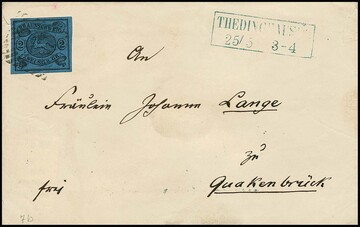 2 2
THEDINGHAUSEN
25/3 3-4
An
Fräulein Johanne Lange
zu
frei Quakenbrück